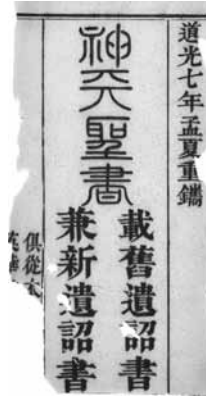 道光七年孟夏重鐫
神天聖書
載舊遺詔書
兼新遺詔書
俱從本